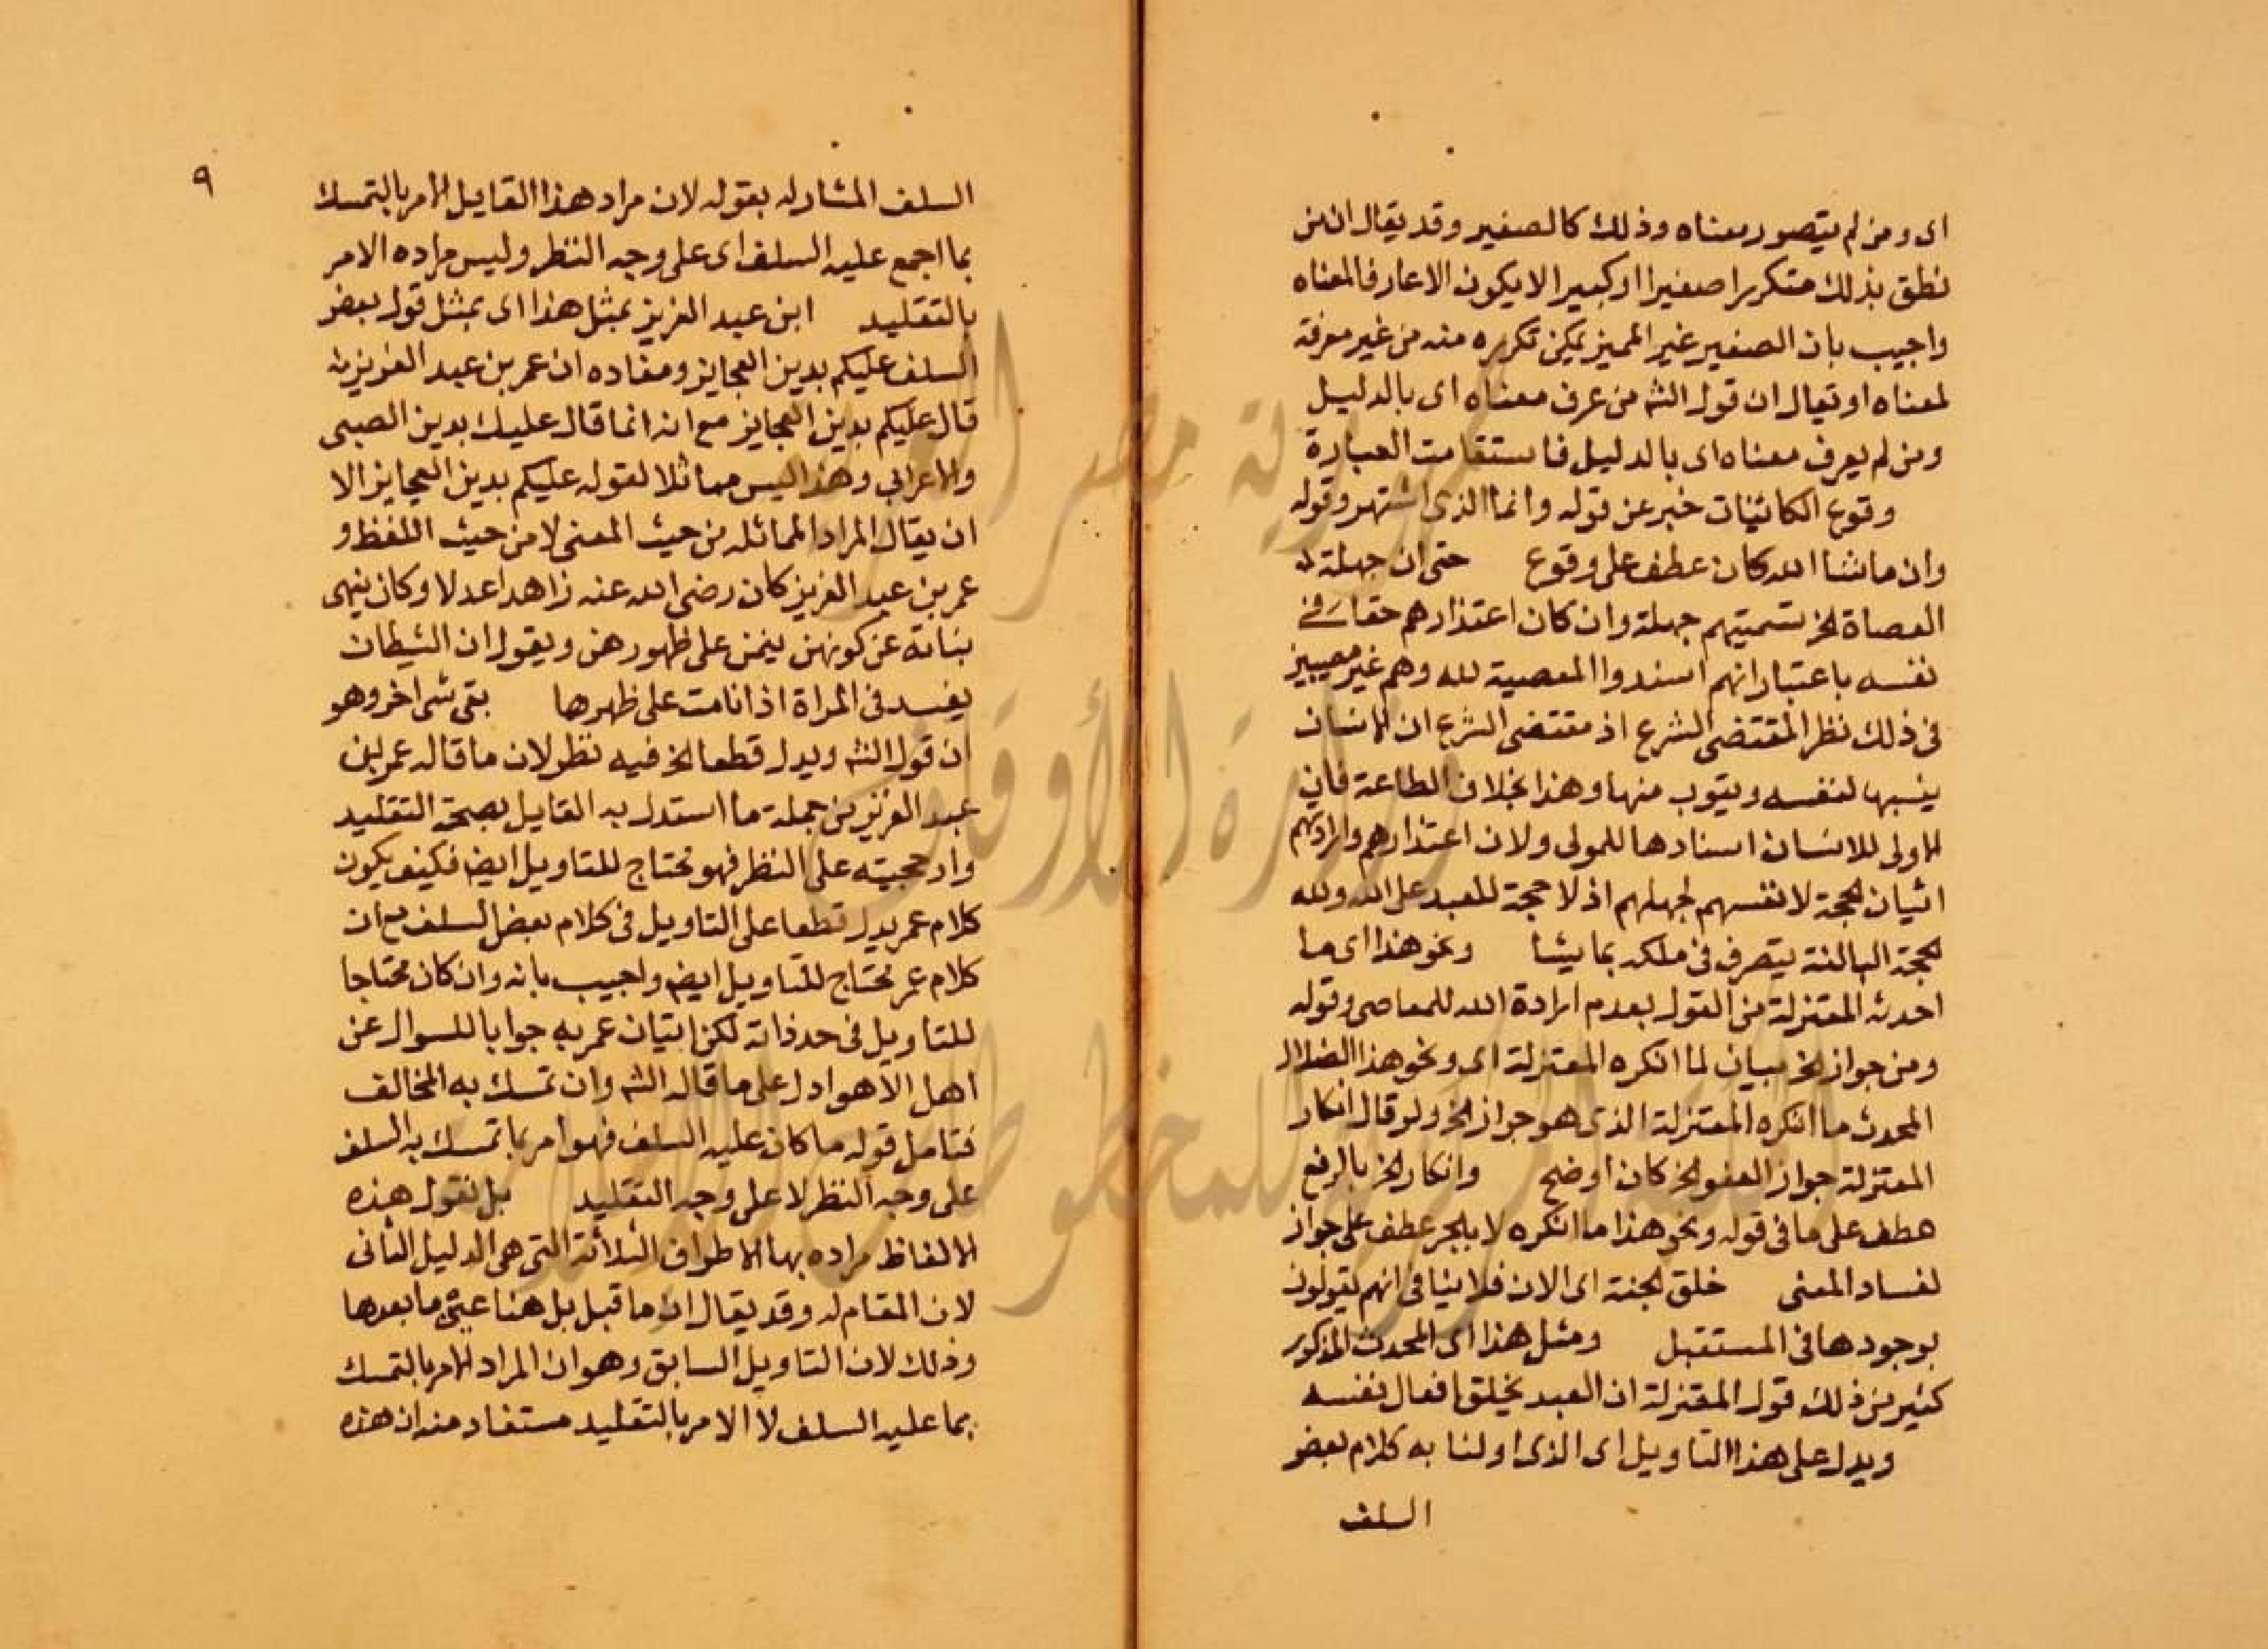 اى ومن لم يتصور معناه وذلك كالصغير وقد يقال ان من
نطق بذلك متكررا صغيرا او كبيرا لا يكون الا عارفا لمعناه
واجيب بان الصغير غير المميز يمكن تكرره منه من غير معرفة
لمعناه او يقال ان قول الش من عرف معناه اى بالدليل
ومن لم يعرف معناه اى بالدليل فاستقامت العبارة
وقوع الكائنات خبر عن قوله وانما الذى اشتهر وقوله
وان ما شا الله كان عطف على وقوع حتى ان جهلة
العصاة الخ تسميتهم جهلة وان كان اعتذارهم حقا فى
نفسه باعتبار انهم اسندوا المعصية لله وهم غير مصيبين
فى ذلك نظرا لمقتضى الشرع اذ مقتضى الشرع ان الانسان
ينسبها لنفسه ويتوب منها وهذا بخلاف الطاعة فان
الاولى للانسان اسنادها للمولى ولان اعتذارهم وارادتهم
اتيان الحجة لانفسهم لجهلهم اذ لا حجة للعبد على الله ولله
الحجة البالغة يتصرف فى ملكه بما يشا ونحو هذا اى ما
احدثه المعتزلة من القول بعدم ارادة الله للمعاصى وقوله
ومن جواز الخ بيان لما انكره المعتزلة اى ونحو هذا الضلال
المحدث ما انكره المعتزلة الذى هو جواز الخ ولو قال انكار
المعتزلة جواز العفو الخ كان اوضح وانكار الخ بالرفع
عطف على ما فى قوله ونحو هذا ما انكره لا بالجر عطف على جواز
لفساد المعنى خلق الجنة اى الان فلا ينافى انهم يقولون
بوجودها فى المستقبل ومثل هذا اى المحدث المذكور
كثير من ذلك قول المعتزلة ان العبد يخلق افعال نفسه
ويدل على هذا التاويل اى الذى اولنا به كلام بعض
السلف
٩
السلف المشار له بقوله لان مراد هذا القايل الامر بالتمسك
بما اجمع عليه السلف اى على وجه النظر وليس مراده الامر
بالتقليد ابن عبد العزيز بمثل هذا اى بمثل قول بعض
السلف عليكم بدين العجايز ومفاده ان عمر بن عبد العزيز
قال عليكم بدين العجايز مع انه انما قال عليك بدين الصبى
والاعرابى وهذا ليس مماثلا لقوله عليكم بدين العجايز الا
ان يقال المراد المماثلة من حيث المعنى لا من حيث اللفظ و
عمر بن عبد العزيز كان رضى الله عنه زاهدا عدلا وكان ينهى
بناته عن كونهن ينمن على ظهورهن ويقول ان الشيطان
يفسد فى المراة اذا نامت على ظهرها بقى شى اخر وهو
ان قول الش ويدل قطعا الخ فيه نظر لان ما قاله عمر بن
عبد العزيز من جملة ما استدل به القايل بصحة التقليد
وارجحيته على النظر فهو محتاج للتاويل ايض فكيف يكون
كلام عمر يدل قطعا على التاويل فى كلام بعض السلف مع ان
كلام عمر محتاج للتاويل ايض واجيب بانه وان كان محتاجا
للتاويل فى حد ذاته لكن اتيان عمر به جوابا للسوال عن
اهل الاهوا دل على ما قاله الش وان تمسك به المخالف
فتامل قوله ما كان عليه السلف فهو امر بما تمسك به السلف
على وجه النظر لا على وجه التقليد بل نقول هذه
الالفاظ مراده بها الاطراف الثلاثة التى هى الدليل الثانى
لان المقام له وقد يقال ان ما قبل بل هنا عين ما بعدها
وذلك لان التاويل السابق وهو ان المراد الامر بالتمسك
بما عليه السلف لا الامر بالتقليد مستفاد منه ان هذه